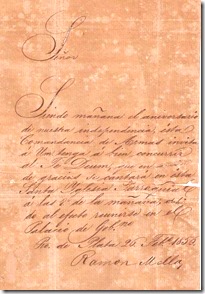 Señor
Siendo mañana el aniversario
de nuestra independencia, esta
Comandancia de Armas invita
á Ud. tenga á bien concurrir
al Te Deum, que en a
de gracias se cantará en esta
Santa Iglesia Parroquial
á las 8 de la mañana,
de al efecto reunirse en el
Palacio de Gob.no
Pto. de Plata 26 Feb.o 185
Ramon Mella